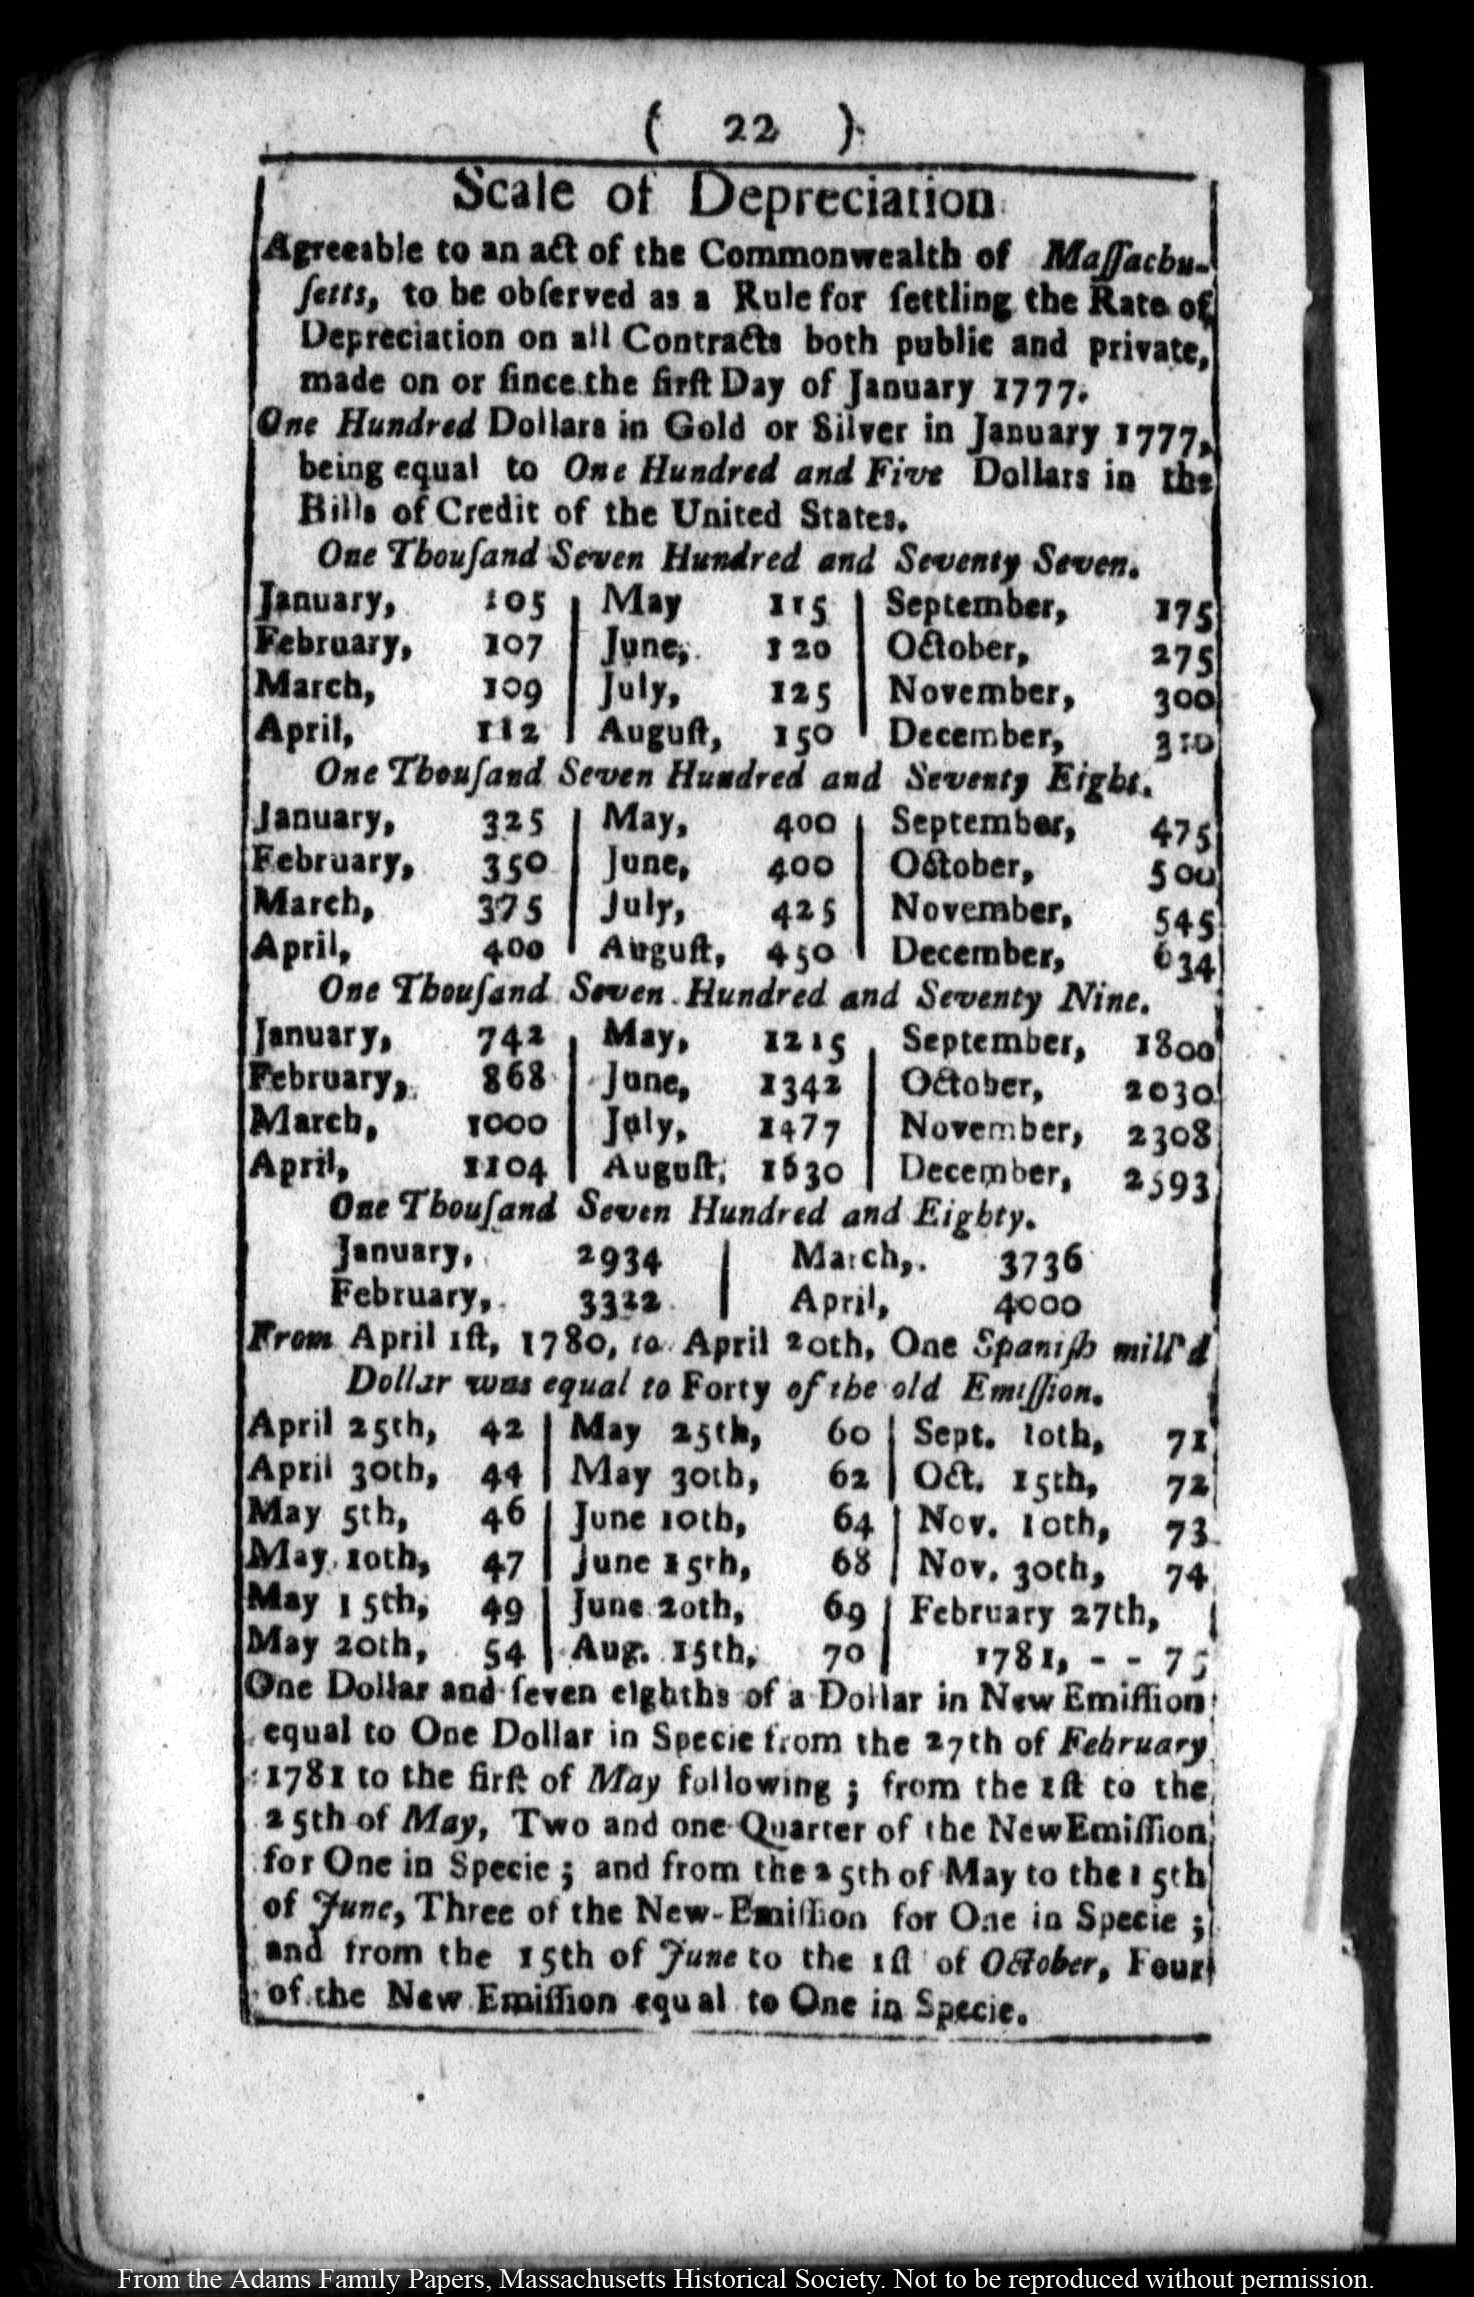 ( 22 )
Scale of Depreciation
Agreeable to an act of the Commonwealth of Maſſachu-
ſetts, to be obſerved as a Rule for ſettling the Rate of
Depreciation on all Contracts both public and private,
made on or ſince the firſt Day of January 1777.
One Hundred Dollars in Gold or Silver in January 1777,
being equal to One Hundred and Five Dollars in the
Bills of Credit of the United States.
One Thouſand Seven Hundred and Seventy Seven.
January, 105 | May 115 | September, 175
February, 107 | June, 120 | October, 275
March, 109 | July, 125 | November, 300
April, 112 | Auguſt, 150 | December, 310
One Thouſand Seven Hundred and Seventy Eight.
January, 325 | May, 400 | September, 475
February, 350 | June, 400 | October, 500
March, 375 | July, 425 | November, 545
April, 400 | Auguſt, 450 | December, 634
One Thouſand Seven Hundred and Seventy Nine.
January, 742 | May, 1215 | September, 1800
February, 868 | June, 1342 | October, 2030
March, 1000 | July, 1477 | November, 2308
April, 1104 | Auguſt, 1630 | December, 2593
One Thouſand Seven Hundred and Eighty.
January, 2934 | March, 3736
February, 3322 | April, 4000
From April 1ſt, 1780, to April 20th, One Spaniſh mill'd
Dollar was equal to Forty of the old Emiſſion.
April 25th, 42 | May 25th, 60 | Sept. 10th, 71
April 30th, 44 | May 30th, 62 | Oct. 15th, 72
May 5th, 46 | June 10th, 64 | Nov. 10th, 73
May 10th, 47 | June 15th, 68 | Nov. 30th, 74
May 15th, 49 | June 20th, 69 | February 27th,
May 20th, 54 | Aug. 15th, 70 | 1781, - - 75
One Dollar and ſeven eighths of a Dollar in New Emiſſion
equal to One Dollar in Specie from the 27th of February
1781 to the firſt of May following ; from the 1ſt to the
25th of May, Two and one Quarter of the New Emiſſion
for One in Specie ; and from the 25th of May to the 15th
of June, Three of the New-Emiſſion for One in Specie ;
and from the 15th of June to the 1ſt of October, Four
of the New Emiſſion equal to One in Specie.
From the Adams Family Papers, Massachusetts Historical Society. Not to be reproduced without permission.